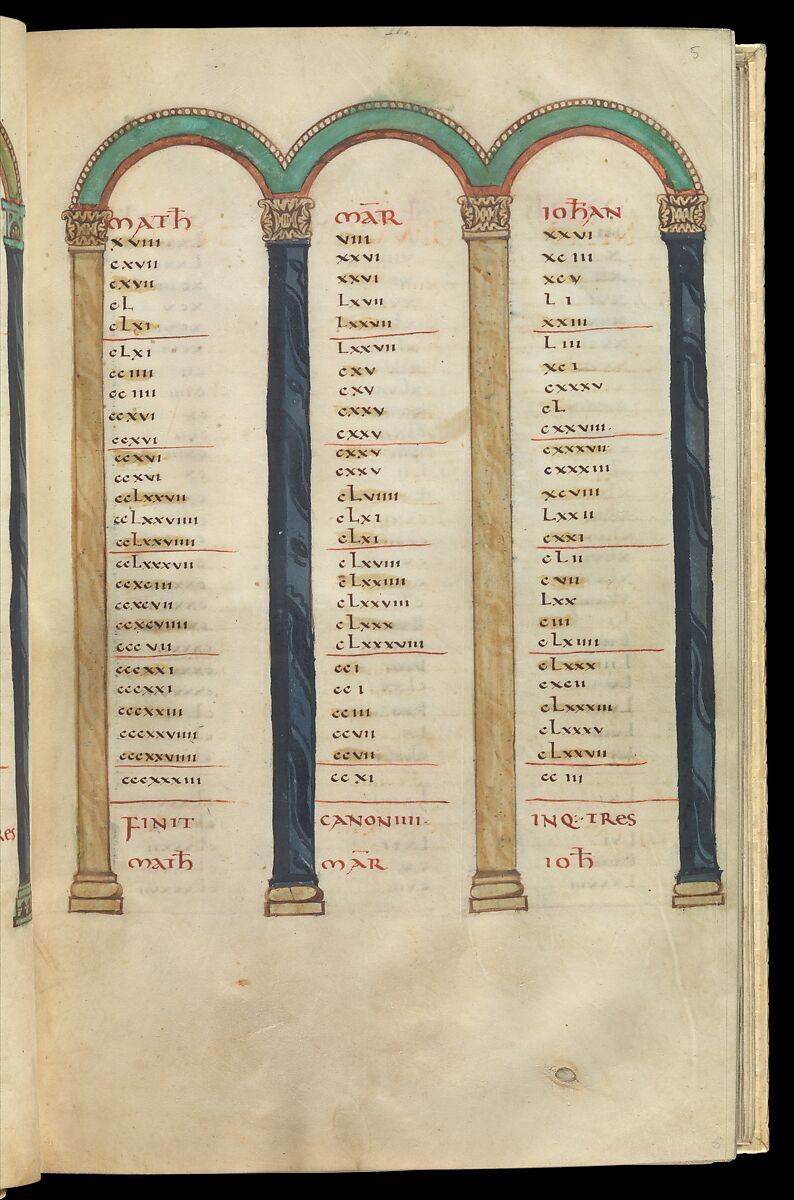 5
MATH MAR IOHAN
xviii viii xxvi
cxvii xxvi xciii
cxvii xxvi xcv
cL Lxvii Li
cLxi Lxxvii xxiii
cLxi Lxxvii Liii
cciiii cxv xci
cciiii cxv cxxxv
ccxvi cxxv cL
ccxvi cxxv cxxviii.
ccxvi cxxv cxxxvii
ccxvi cxxv cxxxiii
ccLxxvii cLviiii xcviii
ccLxxviiii cLxi Lxxii
ccLxxviiii cLxi cxxi
ccLxxxvii cLxviii cLii
ccxciii cLxxiiii cvii
ccxcvii cLxxviii Lxx
ccxcviiii cLxxx ciii
cccvii cLxxxviii cLxiiii
cccxxi cci cLxxx
cccxxi cci cxcii
cccxxiii cciii cLxxxiii
cccxxviiii ccvii cLxxxv
cccxxviiii ccvii cLxxvii
cccxxxiii ccxi cciii
FINIT CANON IIII. INQ: TRES
MATH MAR IOH